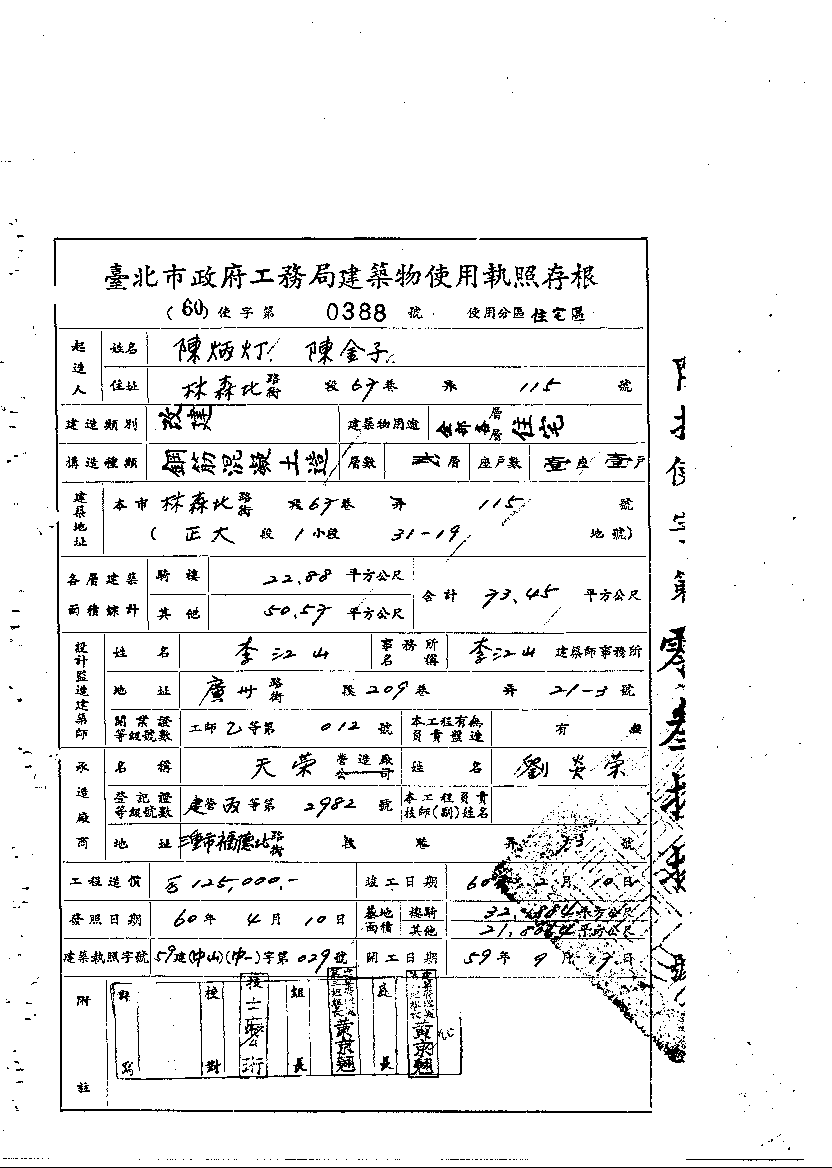 臺北市政府工務局建築物使用執照存根
(60)使字第 0388 號 使用分區 住宅區
起造人 姓名 陳炳灯 陳金子
住址 林森北路街 段 67 巷 弄 115 號
建造類別 改建 建築物用途 全部各層層 住宅
構造種類 鋼筋混凝土造 層數 弍層 座戶數 壹座 壹戶
建築地址 本市 林森北路街 段 67 巷 弄 115 號
( 正大 段 1 小段 31-19 地號)
各層建築面積總計 騎樓 22.88 平方公尺 合計 73.45 平方公尺
其他 50.57 平方公尺
設計監造建築師 姓名 李江山 事務所名稱 李江山 建築師事務所
地址 廣州路街 段 209 巷 弄 21-3 號
開業證等級號數 工師乙等第 012 號 本工程有無負責監造 有 無
承造廠商 名稱 天榮 營造廠公司 姓名 劉炎榮
登記證等級號數 建營丙等第 2982 號 本工程負責技師(副)姓名
地址 三重市福德北路街 段 巷 弄 73 號
工程造價 125,000.- 竣工日期 60年 2月 10日
發照日期 60年 4月 10日 基地面積 樓騎 平方公尺
其他 平方公尺
建築執照字號 59建(中山)(中一)字第 029 號 開工日期 59年 9月 17日
附註 繕寫 校對 組長 長
黃京翹 黃京翹